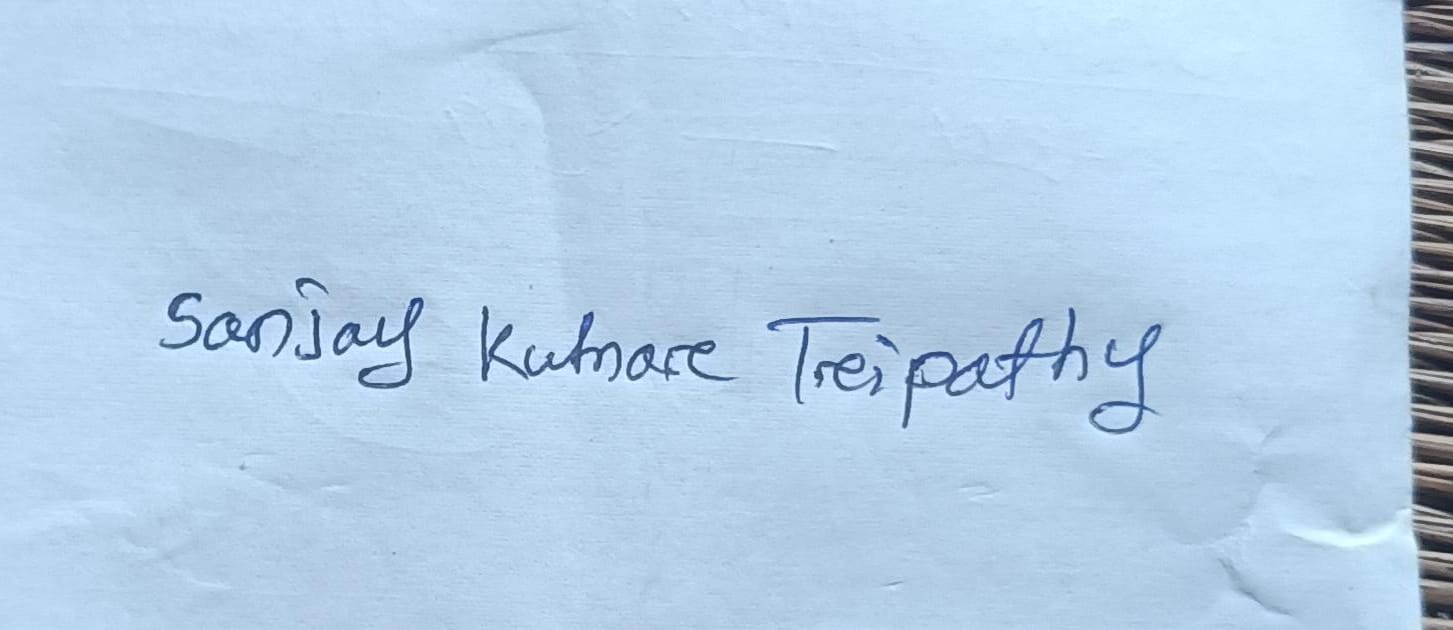 Sanjay Kumar Tripathy